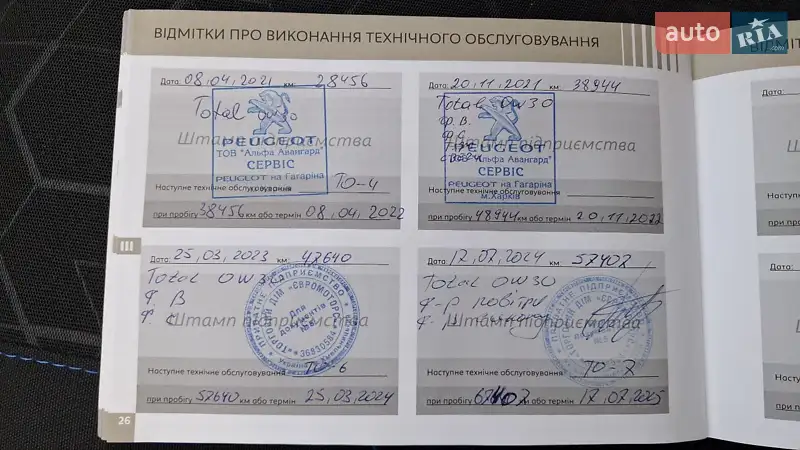 auto RIA
ВІДМІТКИ ПРО ВИКОНАННЯ ТЕХНІЧНОГО ОБСЛУГОВУВАННЯ
ВІДМІТ
Дата: 08.04.2021 км: 28456
Total 0w30
Штамп підприємства
PEUGEOT
ТОВ "Альфа Авангард"
СЕРВІС
PEUGEOT на Гагаріна
Наступне технічне обслуговування ТО-4
при пробігу 38456 км або термін 08.04.2022
Дата: 20.11.2021 км: 38944
Total 0w30
ф.в.
Штамп підприємства
PEUGEOT
"Альфа Авангард"
СЕРВІС
PEUGEOT на Гагаріна
м.Харків
Наступне технічне
при пробігу 48944 км або термін 20.11.2022
Дата:
III
Дата: 25.03.2023 км: 47640
Total 0w30
Ф. В
Ф. С
Штамп підприємства
ПРИВАТНЕ ПІДПРИЄМСТВО
ТОРГОВИЙ ДІМ "ЄВРОМОТОР"
Для документів
36830584
Україна
Наступне технічне обслуговування ТО-6
при пробігу 57640 км або термін 25.03.2024
Дата: 17.07.2024 км: 57407
Total 0w30
Ф-р повітри
Ф-р
Штамп підприємства
ТОРГОВИЙ ДІМ
Наступне технічне обслуговування ТО-7
при пробігу 67407 км або термін 17.07.2025
Дата:
26